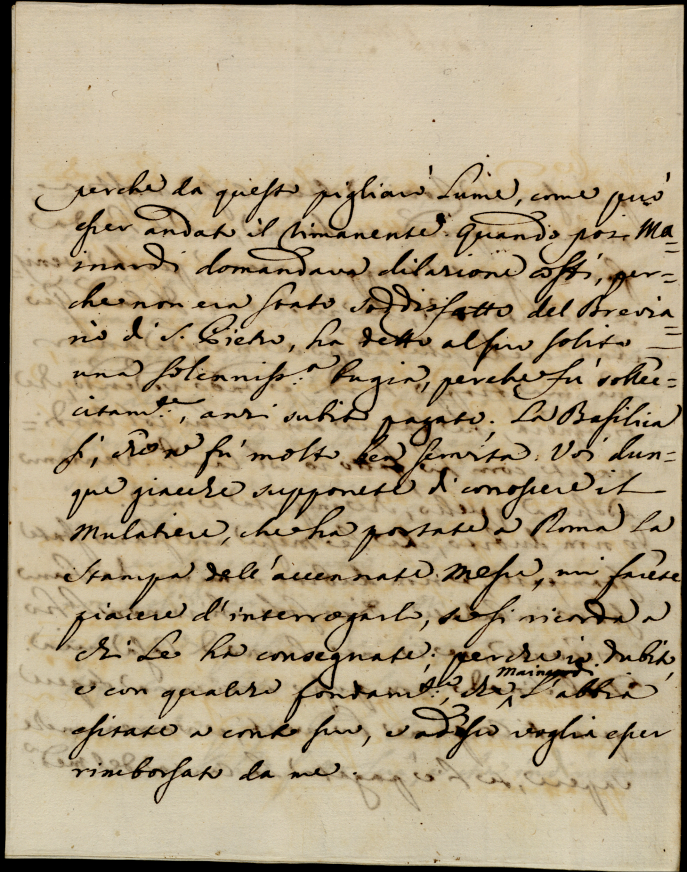 perche da questo pigliarò Lume, come può
esser andato il rimanente. Quando poi Ma=
inardi domandava dilazione costì, per=
che non era stato soddisfatto del Brevia=
rio di S. Pietro, ha detto al suo solito
una solenniss.ª bugia, perche fù solle=
citam.te, anzi subito pagato. La Basilica
sì, che nè fù molto ben servita. Voi dun=
que giacche supponete di conoscere il
Mulatiere, che ha portate a Roma la
Stampa dell'accennate Messe, mi farete
piacere d'interrogarlo, se si ricorda a
chi Le ha consegnate: perche io dubito,
e con qualche fondam.to, che Mainardi l'abbia
esitate a conto suo, e adesso voglia esser
rimborsato da me.